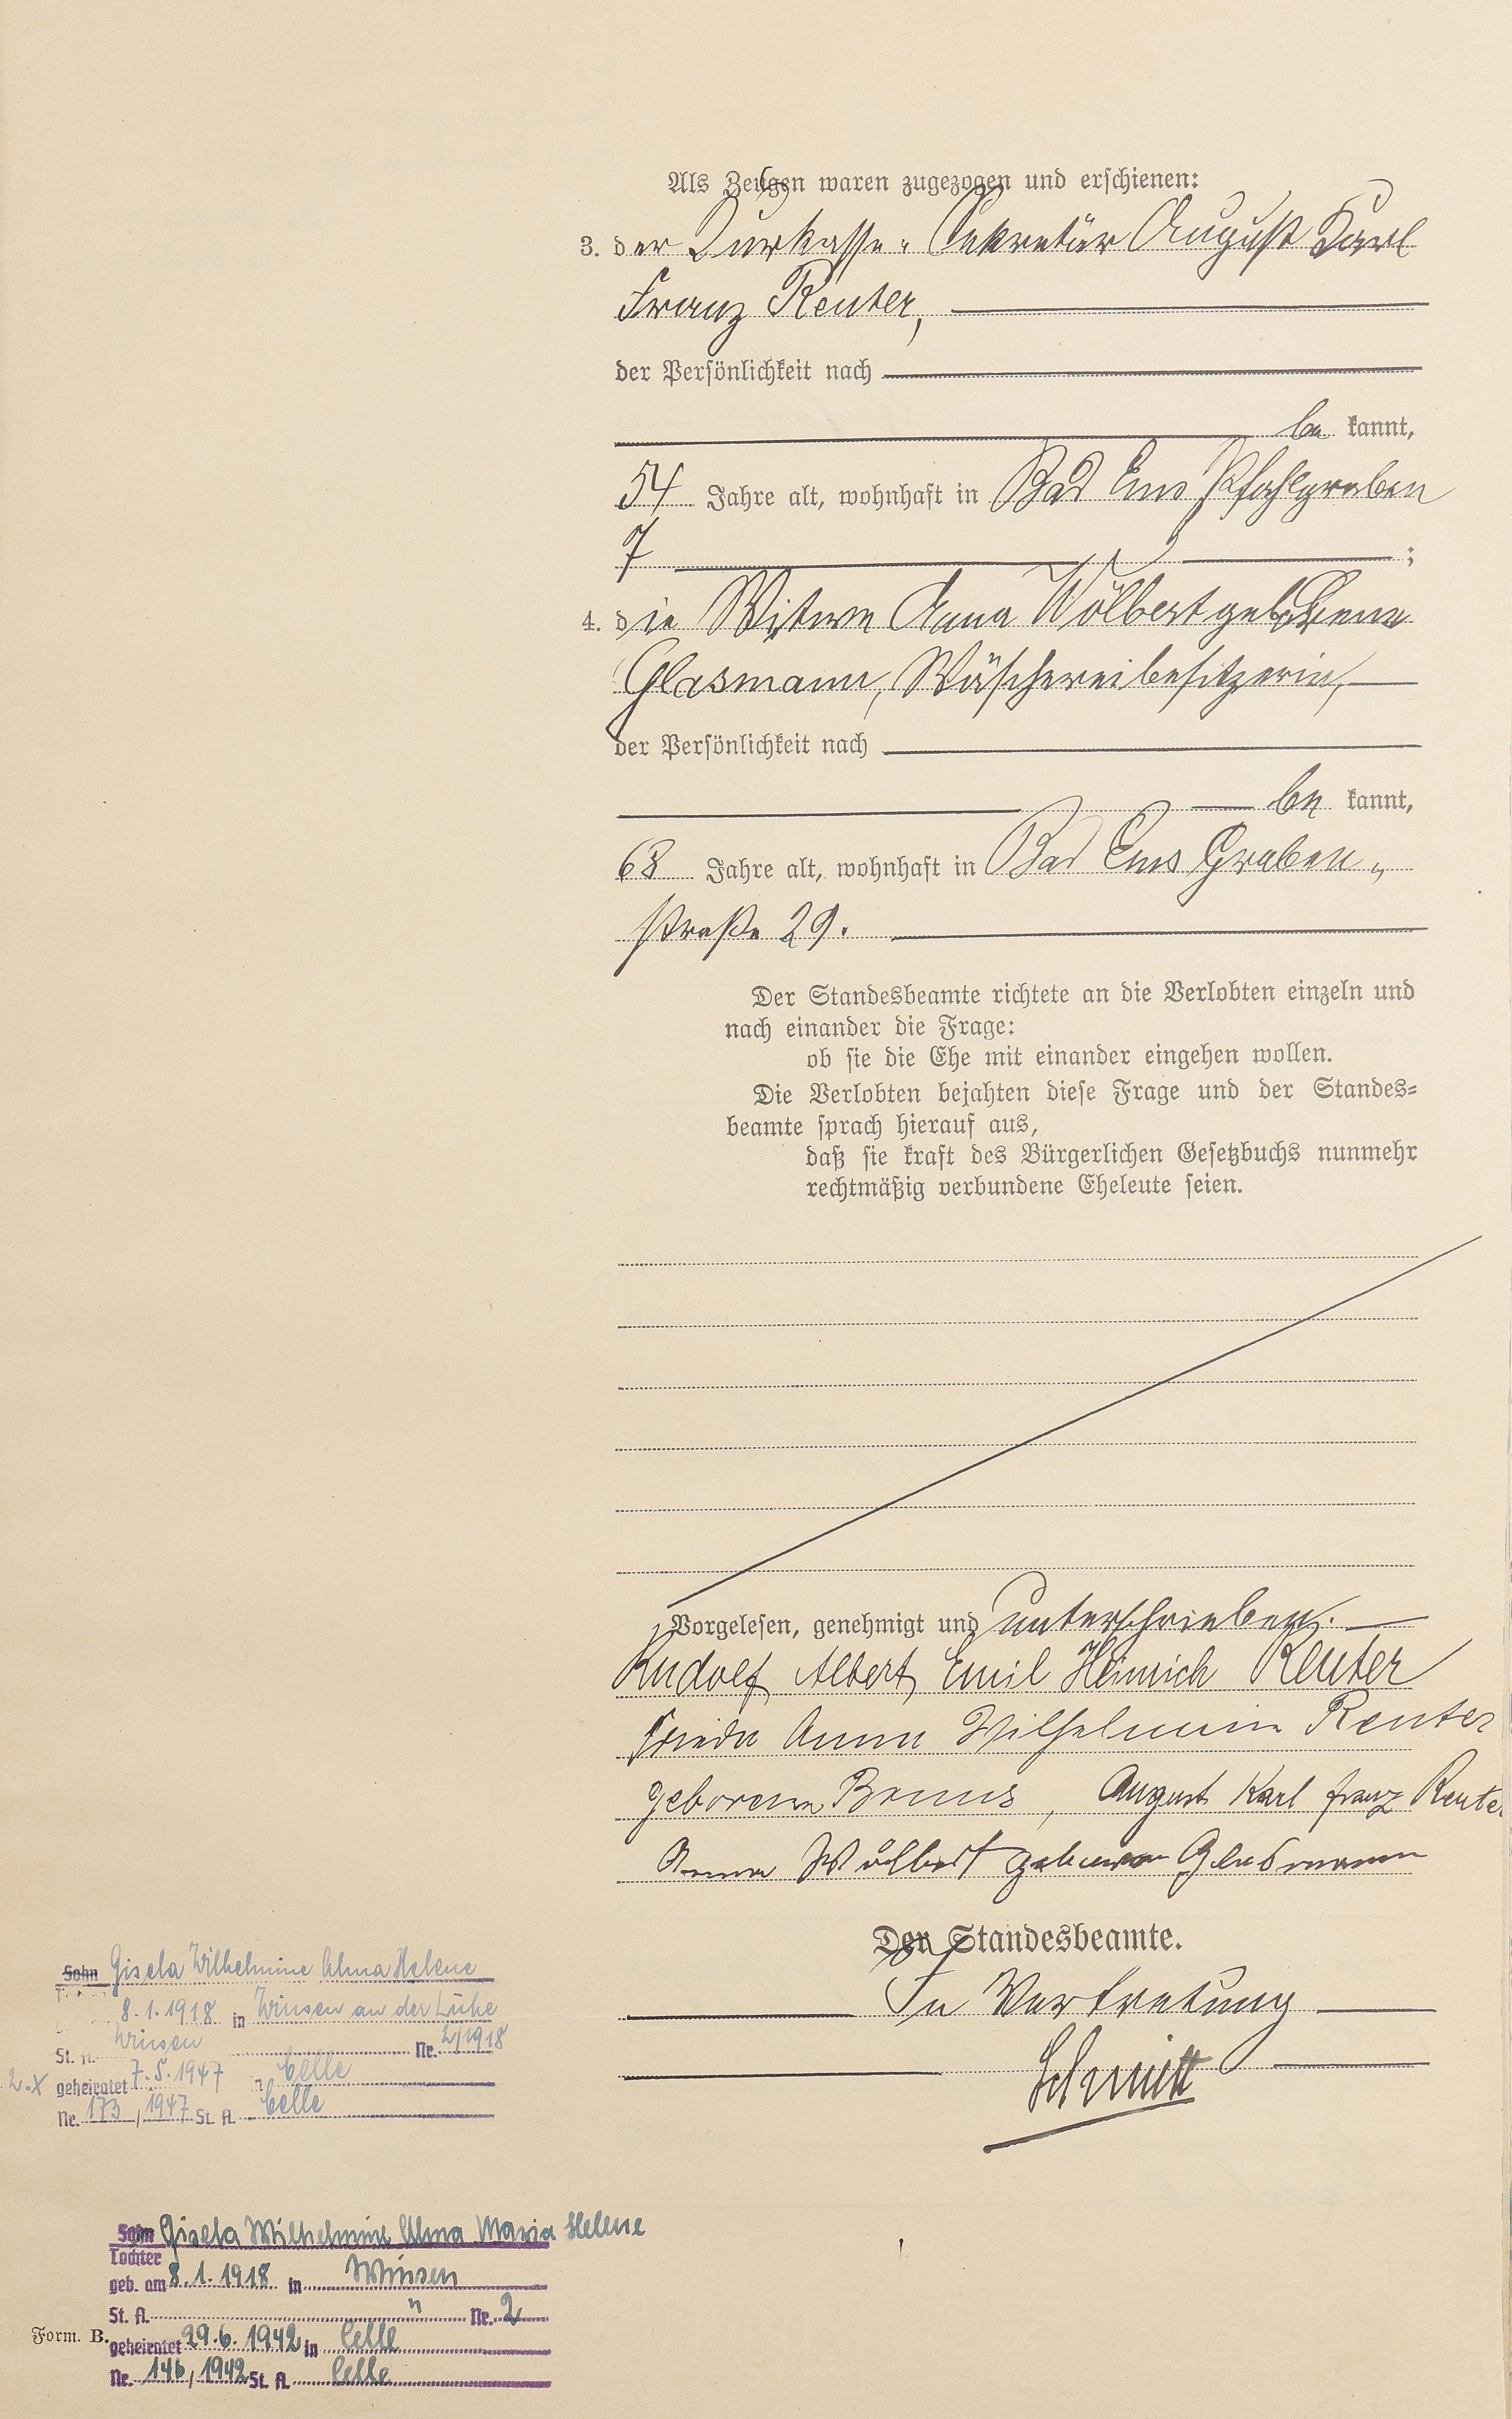 Als Zeugen waren zugezogen und erschienen:
3. der Kurkasse-Sekretär August Karl
Franz Reuter,
der Persönlichkeit nach
be kannt,
54 Jahre alt, wohnhaft in Bad Ems Pfahlgraben
7 ;
4. die Witwe Anna Wölbert geborene
Glasmann, Wäschereibesitzerin,
der Persönlichkeit nach
be kannt,
68 Jahre alt, wohnhaft in Bad Ems Graben-
straße 29.
Der Standesbeamte richtete an die Verlobten einzeln und
nach einander die Frage:
ob sie die Ehe mit einander eingehen wollen.
Die Verlobten bejahten diese Frage und der Standes-
beamte sprach hierauf aus,
daß sie kraft des Bürgerlichen Gesetzbuchs nunmehr
rechtmäßig verbundene Eheleute seien.
Vorgelesen, genehmigt und unterschrieben.
Rudolf Albert Emil Heinrich Reuter
Frieda Anna Wilhelmine Reuter
geborene, August Karl Franz Reuter
Anna Wölbert geborene Glasmann
Der Standesbeamte.
In Vertretung
Schmitt
Sohn Gisela Wilhelmine Alma Helene
8.1.1918 in Winsen an der Luhe
St. A. Winsen Nr. 2/1918
2.X geheiratet 7.5.1947 in Celle
Nr. 173/1947 St. A. Celle
Sohn Gisela Wilhelmine Alma Maria Helene
Tochter
geb. am 8.1.1918 in Winsen
St. A. " Nr. 2
Form. B. geheiratet 29.6.1942 in Celle
Nr. 146/1942 St. A. Celle